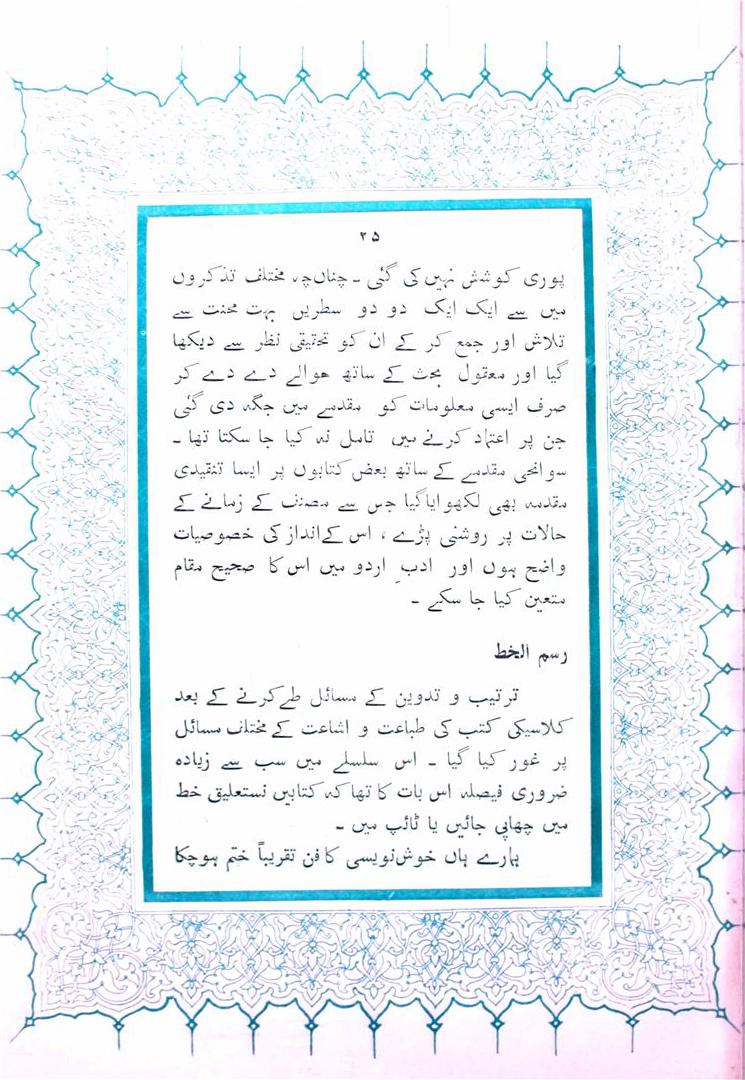 ۲۵
پوری کوشش نہیں کی گئی ۔ چناں‌چہ مختلف تذکروں
میں سے ایک ایک دو دو سطریں بہت محنت سے
تلاش اور جمع کر کے ان کو تحقیقی نظر سے دیکھا
گیا اور معقول بحث کے ساتھ حوالے دے دے کر
صرف ایسی معلومات کو مقدمے میں جگہ دی گئی
جن پر اعتماد کرنے میں تامل نہ کیا جا سکتا تھا ۔
سوانحی مقدمے کے ساتھ بعض کتابوں پر ایسا تنقیدی
مقدمہ بھی لکھوایا گیا جس سے مصنف کے زمانے کے
حالات پر روشنی پڑے ، اس کے انداز کی خصوصیات
واضح ہوں اور ادبِ اردو میں اس کا صحیح مقام
متعین کیا جا سکے ۔
رسم الخط
ترتیب و تدوین کے مسائل طے کرنے کے بعد
کلاسیکی کتب کی طباعت و اشاعت کے مختلف مسائل
پر غور کیا گیا ۔ اس سلسلے میں سب سے زیادہ
ضروری فیصلہ اس بات کا تھا کہ کتابیں نستعلیق خط
میں چھاپی جائیں یا ٹائپ میں ۔
ہمارے ہاں خوش‌نویسی کا فن تقریباً ختم ہوچکا